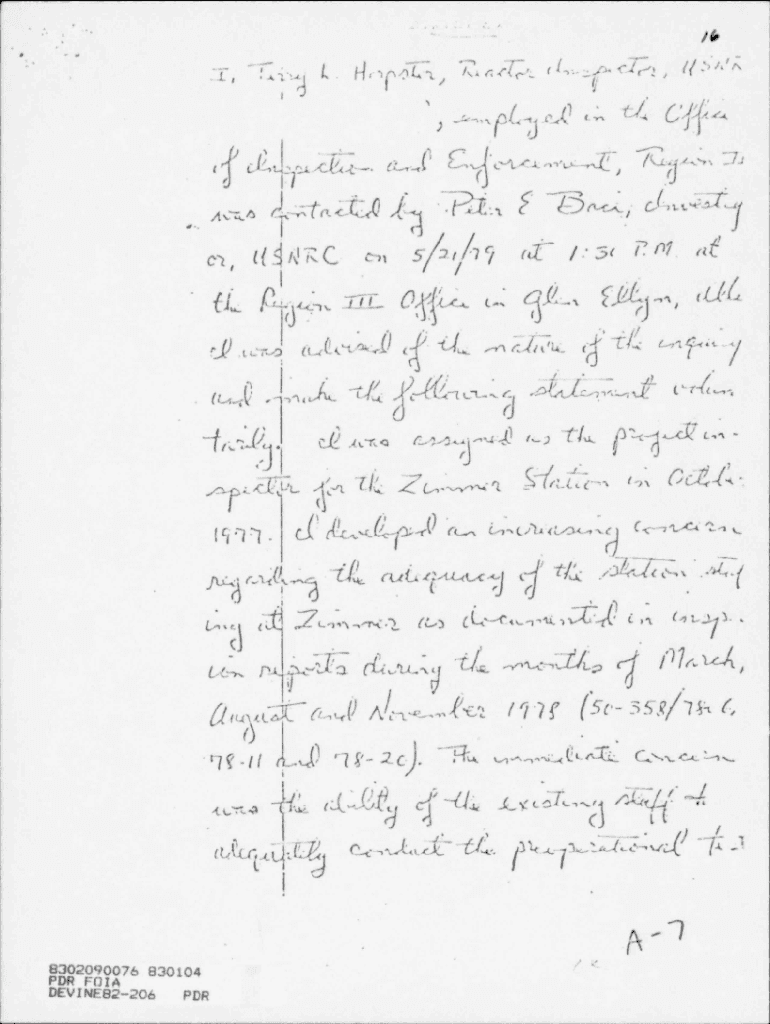 16
I, Terry L. Harpster, Reactor Inspector, USNR
, employed in the Office
of Inspection and Enforcement, Region
was contacted by Peter E Baci, Investig
or, USNRC on 5/21/79 at 1:31 P.M. at
the Region III Office in Glen Ellyn,
I was advised of the nature of the inquiry
and make the following statement volun
tarily. I was assigned as the project in-
spector for the Zimmer Station in
1977. I developed an increasing concern
regarding the adequacy of the station staf
ing at Zimmer as documented in insp.
ion reports during the months of March,
August and November 1978 (50-358/78-
78-11 and 78-20). The immediate concern
was the ability of the existing staff to
adequately conduct the preoperational
A-7
8302090076 830104
PDR FOIA
DEVINE82-206 PDR